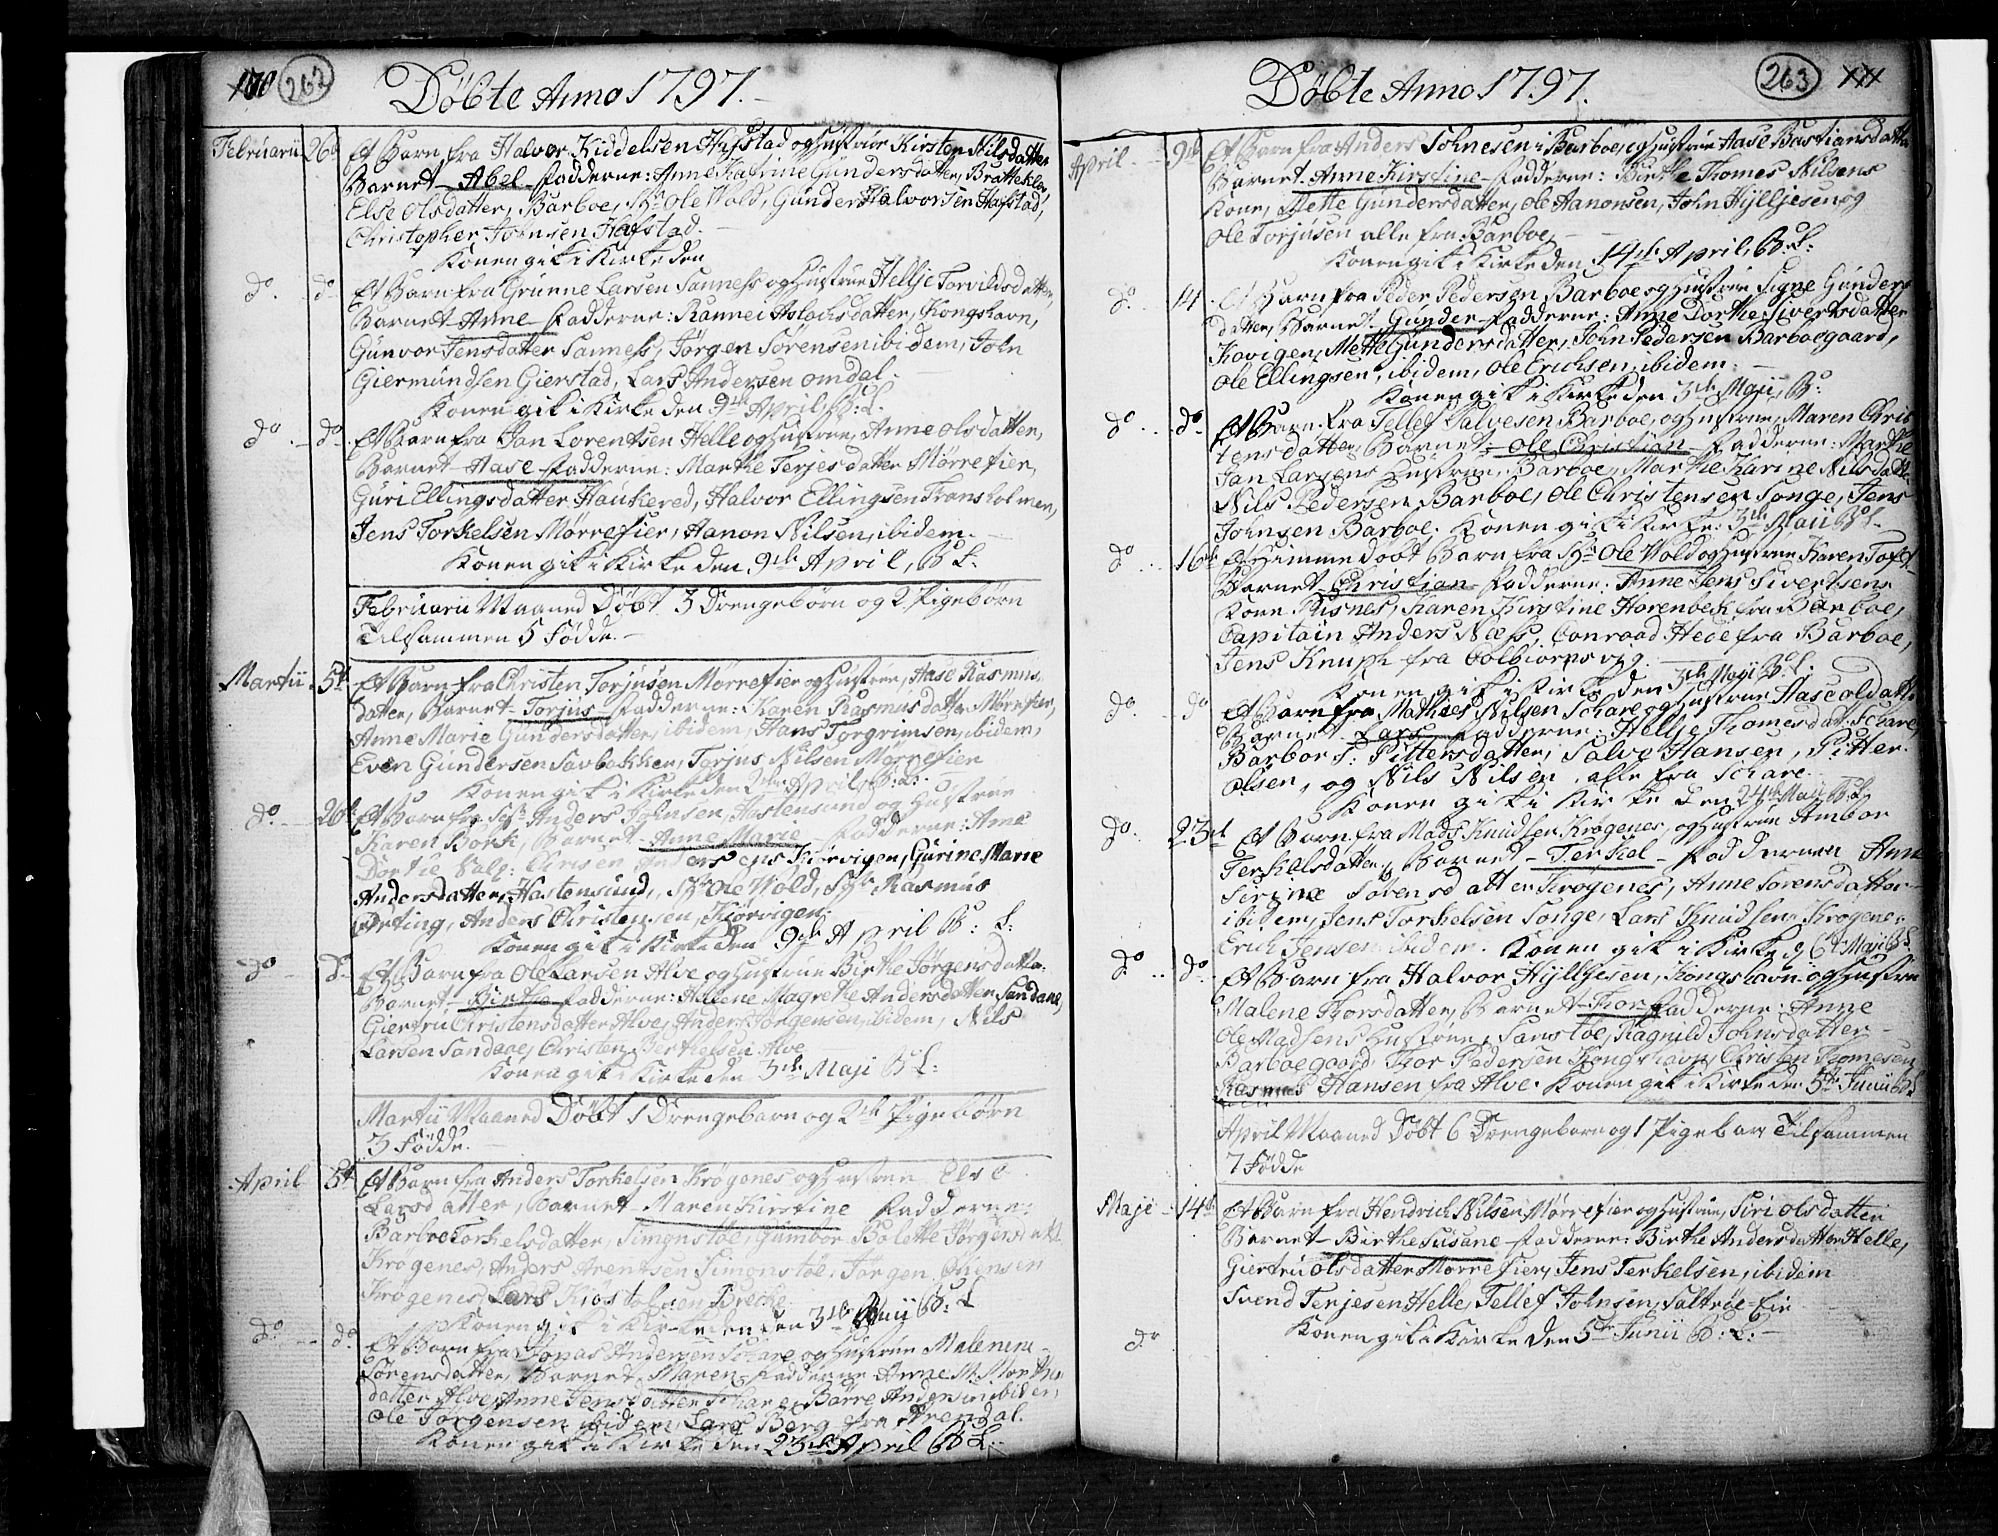 110 262 Döbte Anno 1797.
Februarii 26d Et Barn fra Halvor Kiddelsen Hafstad og Hustrue Kirsten Nilsdatter
Barnet Abel Fadderne: Anne Katrine Gundersdatter, Bratteklev,
Else Olsdatter, Barboe, Sr Ole Wold, Gunder Halvorsen Hafstad,
Christopher Johnsen Hafstad.
Konen gik i Kirke den
do. do Et Barn fra Grunne Larsen Sanness og Hustrue Hellje Torvildsdatter,
Barnet Anne Fadderne: Rannei Aslachsdatter, Kongshavn,
Gunvor Jensdatter Sanness, Jörgen Sörensen ibidem, John
Giermundsen Gierstad, Lars Andersen omdal.
Konen gik i Kirke den 9de April, B: L.
do do Et Barn fra Jan Lorentsen Helle og Hustrue, Anne Olsdatter,
Barnet Aase Fadderne: Marthe Terjesdatter Mörrefier,
Guri Ellingsdatter Haukered, Halvor Ellingsen Transholmen,
Jens Torkelsen Mörrefier, Aanon Nilsen, ibidem.
Konen gik i Kirke den 9de April, B L.
Februarii Maaned Döbt 3 Drengebörn og 2 Pigebörn
Tilsammen 5 Födde.
Martii 5t Et Barn fra Christen Torjusen Mörrefier og Hustrue, Aase Rasmus
datter, Barnet Torjus Fadderne: Karen Rasmusdatter Mörrefier,
Anne Marie Gundersdatter, ibidem, Hans Torgrimsen, ibidem,
Even Gundersen Savbekken, Torjus Nilsen Mörrefier
Konen gik i Kirke den 2den April, B: L:
do. 26de Et Barn fra Sr Anders Johnsen, Hastensund og Hustrue
Karen Bork, Barnet Anne Marie Fadderne: Ane
Dortie Salg: Chrisen Kiörvigen, Gurine Marie
Andersdatter, Hastensund, Sr Ole Wold, Sr Rasmus
Örting, Anders Christensen, Kiörvigen.
Konen gik i Kirke den 9de April B: L:
do do Et Barn fra Ole Larsen Alve og Hustrue Birthe Jörgensdatter
Barnet Birthe Fadderne: Hellene Magrethe Andersdatter Sandane,
Giertru Christensdatter Alve, Anders Jörgensen, ibidem, Nils
Larsen Sandane, Christen Berthelsen Alve
Konen gik i Kirke den 3de Maji B: L:
Martii Maaned Döbt 1 Drengebarn og 2de Pigebörn
3 Födde.
April 5t Et Barn fra Anders Torkelsen Krögenes og Hustrue Else
Larsdatter, Barnet Maren Kirstine Fadderne:
Barboe Torkelsdatter, Simonstöe, Gumbor Bolette Jörgensdatt.
Krögenes, Anders Arentsen Simonstöe, Jörgen Olsensen
Krögenes, Lars Kiöstolsen Brecke
Konen gik i Kirke den 3die Maii B: L
do. do. Et Barn fra Jonas Andersen Schare og Hustrue Malene
Sörensdatter, Barnet Maren Fadderne Anne M: Morthens
datter Alve, Anne Jensdatter Schare, Börre Andersen ibidem,
Ole Jörgensen, ibidem, Lars Berg fra Arendal.
Konen gik i Kirke den 23de April B L:
Döbte Anno 1797. 263 111
April 9de Et Barn fra Anders Johnesen i Barboe, og Hustrue Aase Bastiansdatter
Barnet Anne Kirstine Fadderne: Birthe Thomes Nilsens
Kone, Mette Gundersdatter, Ole Aanonsen, John Hylljesen og
Ole Torjusen alle fra Barboe,
Konen gik i Kirke den 14de April, B: L:
do. 14 Et Barn fra Peder Pedersen Barboe og Hustrue Signe Gunders
datter, Barnet: Gunder Fadderne: Anne Dorthe Sivertsdatter
Kovigen, Mette Gundersdatter, John Pedersen Barboegaard,
Ole Ellingsen, ibidem, Ole Erichsen, ibidem.
Konen gik i Kirke den 3de Maji, B:
do do. Et Barn fra Tellef Salvesen Barboe, og Hustrue, Maren Chris
tensdatter, Barnet: Ole Christian Fadderne: Marthe
Jan Larsens Hustrue, Barboe, Marthe Karine Nilsdatter
Nils Pedersen Barboe, Ole Christensen Songe, Jens
Johnsen Barboe. Konen gik i Kirke: 3de Maii B L.
do 16de Et Himmedöbt Barn fra Sr Ole Wold og Hustrue Karen Toft
Barnet Christian Fadderne: Anne Jens Sivertsens
Kone Risnes, Karen Kirstine Horenbeck fra Barboe,
Capitain Anders Næss, Conraad Hede fra Barboe,
Jens Knuph fra Colbiornsvig.
Konen gik i Kirke den 3de Maji B: L:
do. do Et Barn fra Mathies Nilsen Schare og Hustrue Aase Oldatter
Barnet Lars Fadderne: Hellje Thomesdat. Schare,
Barbor T: Pittersdatter, Salve Hansen, Pitter
Olsen, og Nils Nilsen, alle fra Schare.
Konen gik i Kirke den 24de Maji B L
do. 23d Et Barn fra Mads Knudsen Krögenes, og Hustrue Ambor
Terkelsdatter, Barnet Terkel Fadderne: Ane
Serine Sörensdatter Krögenes, Anne Sörensdatter
ibidem, Jens Torkelsen Songe, Lars Knudsen Krögenes,
Erich Jensen ibidem. Konen gik i Kirke d 6t Maji B L
do. do. Et Barn fra Halvor Hylljesen, Kongshavn og Hustrue
Malene Thorsdatter, Barnet Thor Fadderne: Anne
Ole Madsens Hustrue, Sanstöe, Ragnild Johnsdatter
Barboegaard, Thor Pedersen Kongshavn, Christen Thomesen
Rasmus Hansen fra Alve. Konen gik i Kirke den 5te Junii B L
April Maaned Döbt 6 Drengebarn og 1 Pigebarn Tilsammen
7 Födde
Maje 14de Et Barn fra Hendrich Nilsen, Mörrefier og Hustrue, Siri Olsdatter
Barnet Birthe Susane Fadderne: Birthe Andersdatter Helle,
Giertru Olsdatter Mörrefier, Jens Terkelsen, ibidem
Svend Terjesen Helle, Tellef Johnsen, Saltröe-Eie
Konen gik i Kirke den 5te Junii B: L:
do